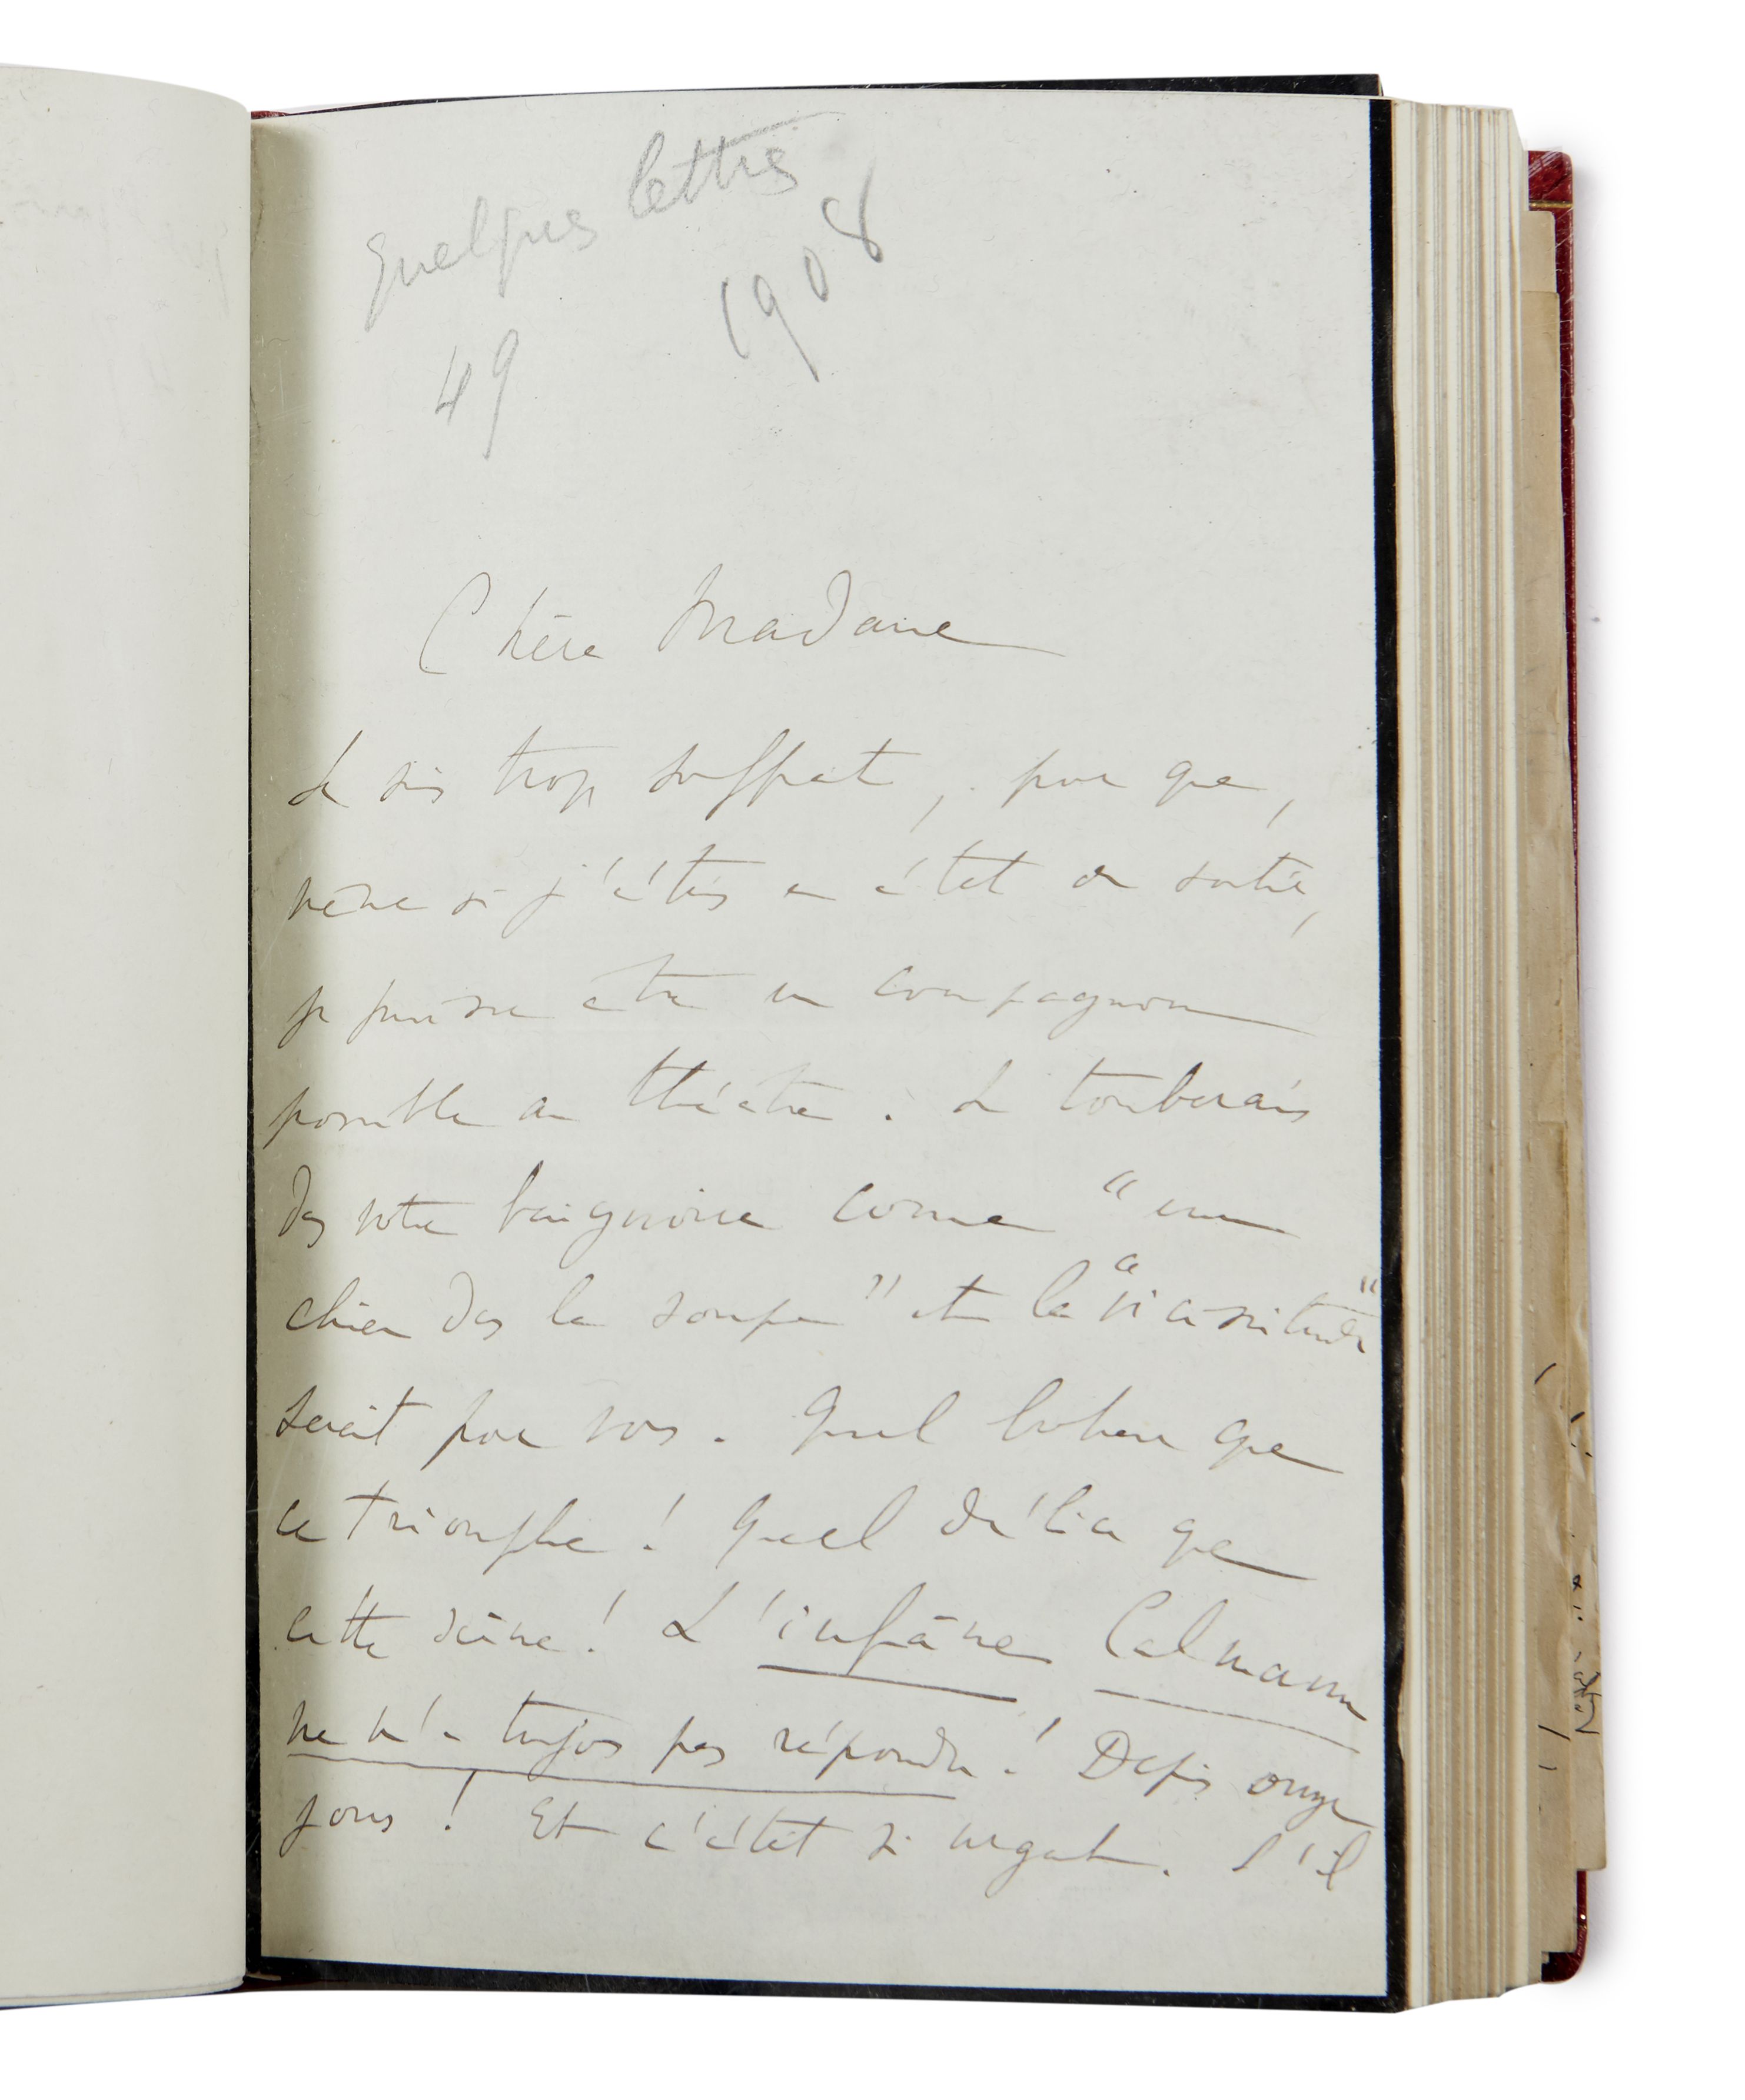 quelques lettres
1908
49
Chère Madame
Je suis trop souffrant, pour que,
même si j'étais en état de sortir,
je puisse être un compagnon
possible au théâtre. Je tomberais
dans votre baignoire comme "un
chien dans la soupe" et la "vicissitude"
serait pour vous. Quel bonheur que
ce triomphe ! Quel délice que
cette scène ! L'infâme Calmann
ne m'a toujours pas répondu ! Depuis onze
jours ! Et c'était si urgent. S'il